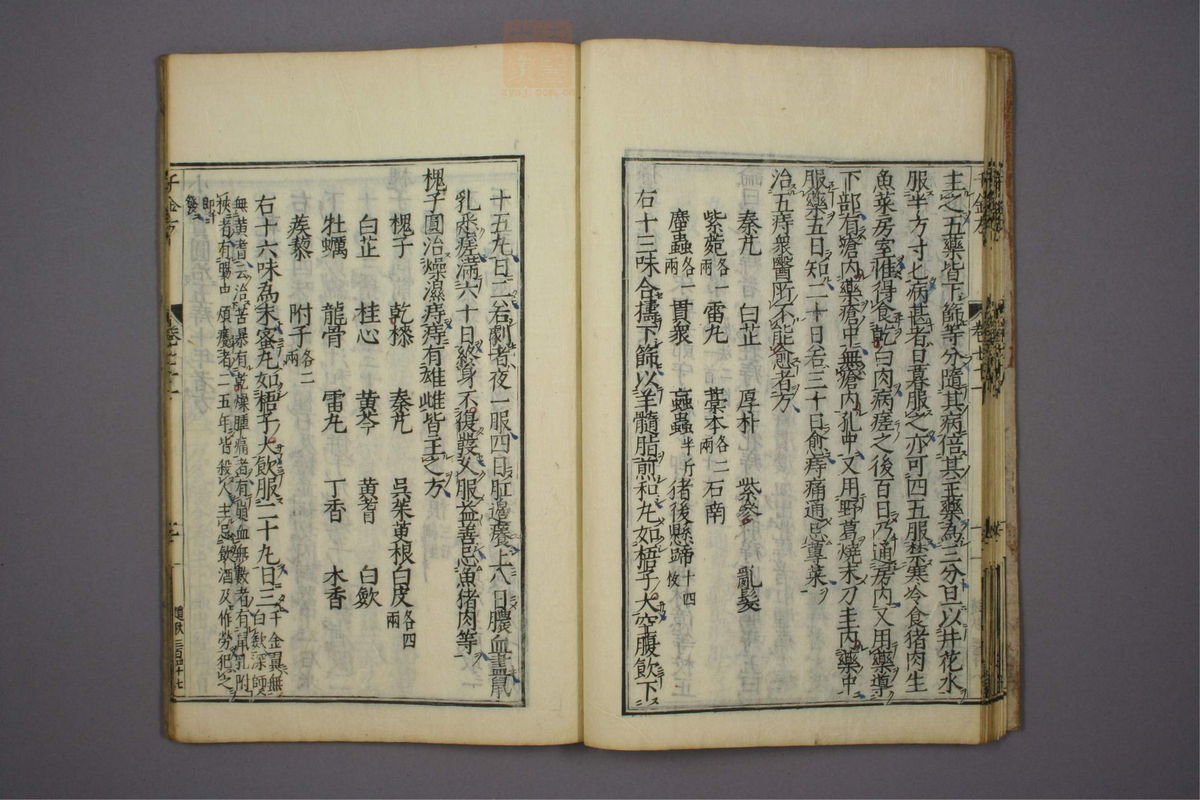 主之五藥皆下篩等分隨其病倍其主藥為三分旦以井花水
服半方寸匕病甚者日暮服之亦可四五服禁寒冷食猪肉生
魚菜房室惟得食乾白肉病瘥之後百日乃通房內又用藥導
下部有瘡內藥瘡中無瘡內孔中又用野葛燒末刀圭內藥中
服藥五日知二十日若三十日愈痔痛通忌蓴菜
治五痔衆醫所不能愈者方
秦艽 白芷 厚朴 紫參 亂髮
紫菀各一兩 雷丸 藁本各二兩 石南
䗪蟲各一兩 貫衆 蝱蟲半斤 猪後懸蹄十四枚
右十三味合擣下篩以羊髓脂煎和丸如梧子大空腹飲下
十五丸日二若劇者夜一服四日肛邊癢止八日膿血盡鼠
乳悉瘥滿六十日終身不復發久服益善忌魚猪肉等
槐子圓治燥濕痔痔有雄雌皆主之方
槐子 乾漆 秦艽 吳茱萸根白皮各四兩
白芷 桂心 黃芩 黃耆 白斂
牡蠣 龍骨 雷丸 丁香 木香
蒺藜 附子各二兩
右十六味為末蜜丸如梧子大飲服二十丸日三千金翼無白斂深師
無黃耆云治苦暴有乾燥腫痛者有崩血無數者有鼠孔附
核者有腸中煩癢者三五年皆殺人主忌飲酒及作勞犯之
即發
千金方
卷七十一